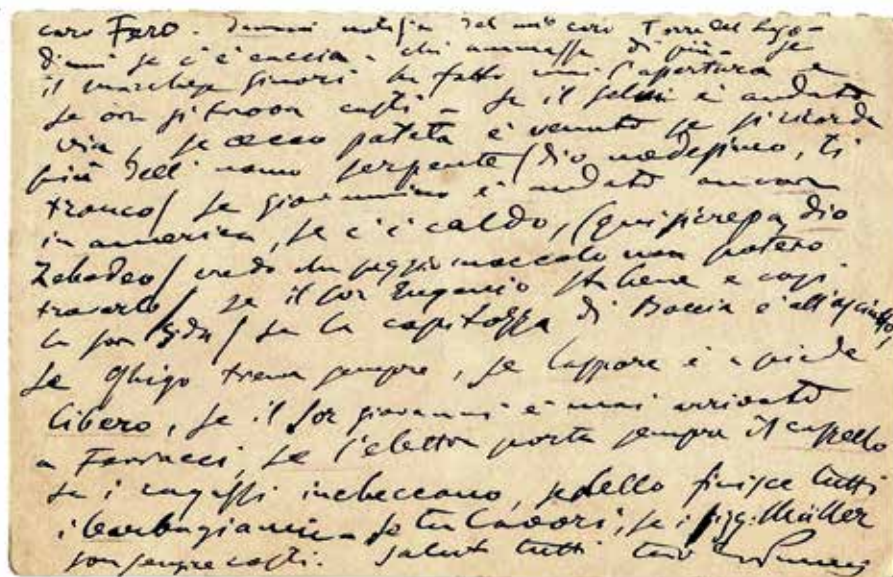 caro Fero. Dammi notizia del mio caro Torre del Lago -
dimmi se c'è caccia - chi ammazza di più - se
il marchese Ginori ha fatto mai l'apertura e
se ora si trova costì - se il è andato
via, se cecco pateta è venuto se si ricorda
più dell' uomo serpente / dio , ti
tronco / se giovannino è andato ancora
in america, se c'è caldo, (qui si crepa, dio
Zebedeo / credo che peggio moccolo non potevo
trovarlo / se il Sor Eugenio sta bene e così
la / se la capitozza di Boccia è all'asciutto,
se Ghigo trema sempre, se è a piede
libero, se il Sor giovanni è mai arrivato
a Ferrucci, se l'elettor porta sempre il cappello
se i ragazzi imbeccano, se finisce tutti
i barbagianni - se tu lavori, se i sigg: Müller
son sempre costì. Saluta tutti tuo